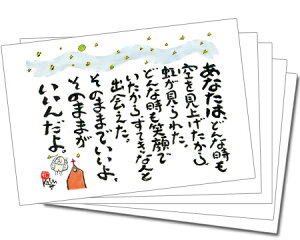 あなたは、どんな時も
空を見上げたから、
虹が見られた。
どんな時も笑顔で
いたから、すてきな人と
出会えた。
そのままでいいよ。
そのままが
いいんだよ。